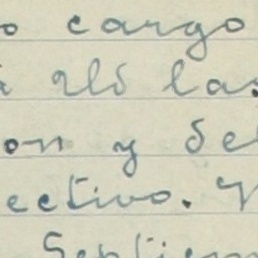 o cargo
las
on y de
ectivo.
Septiem